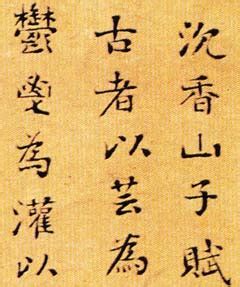 沉香山子賦
古者以芸為
鬱鬯為灌以